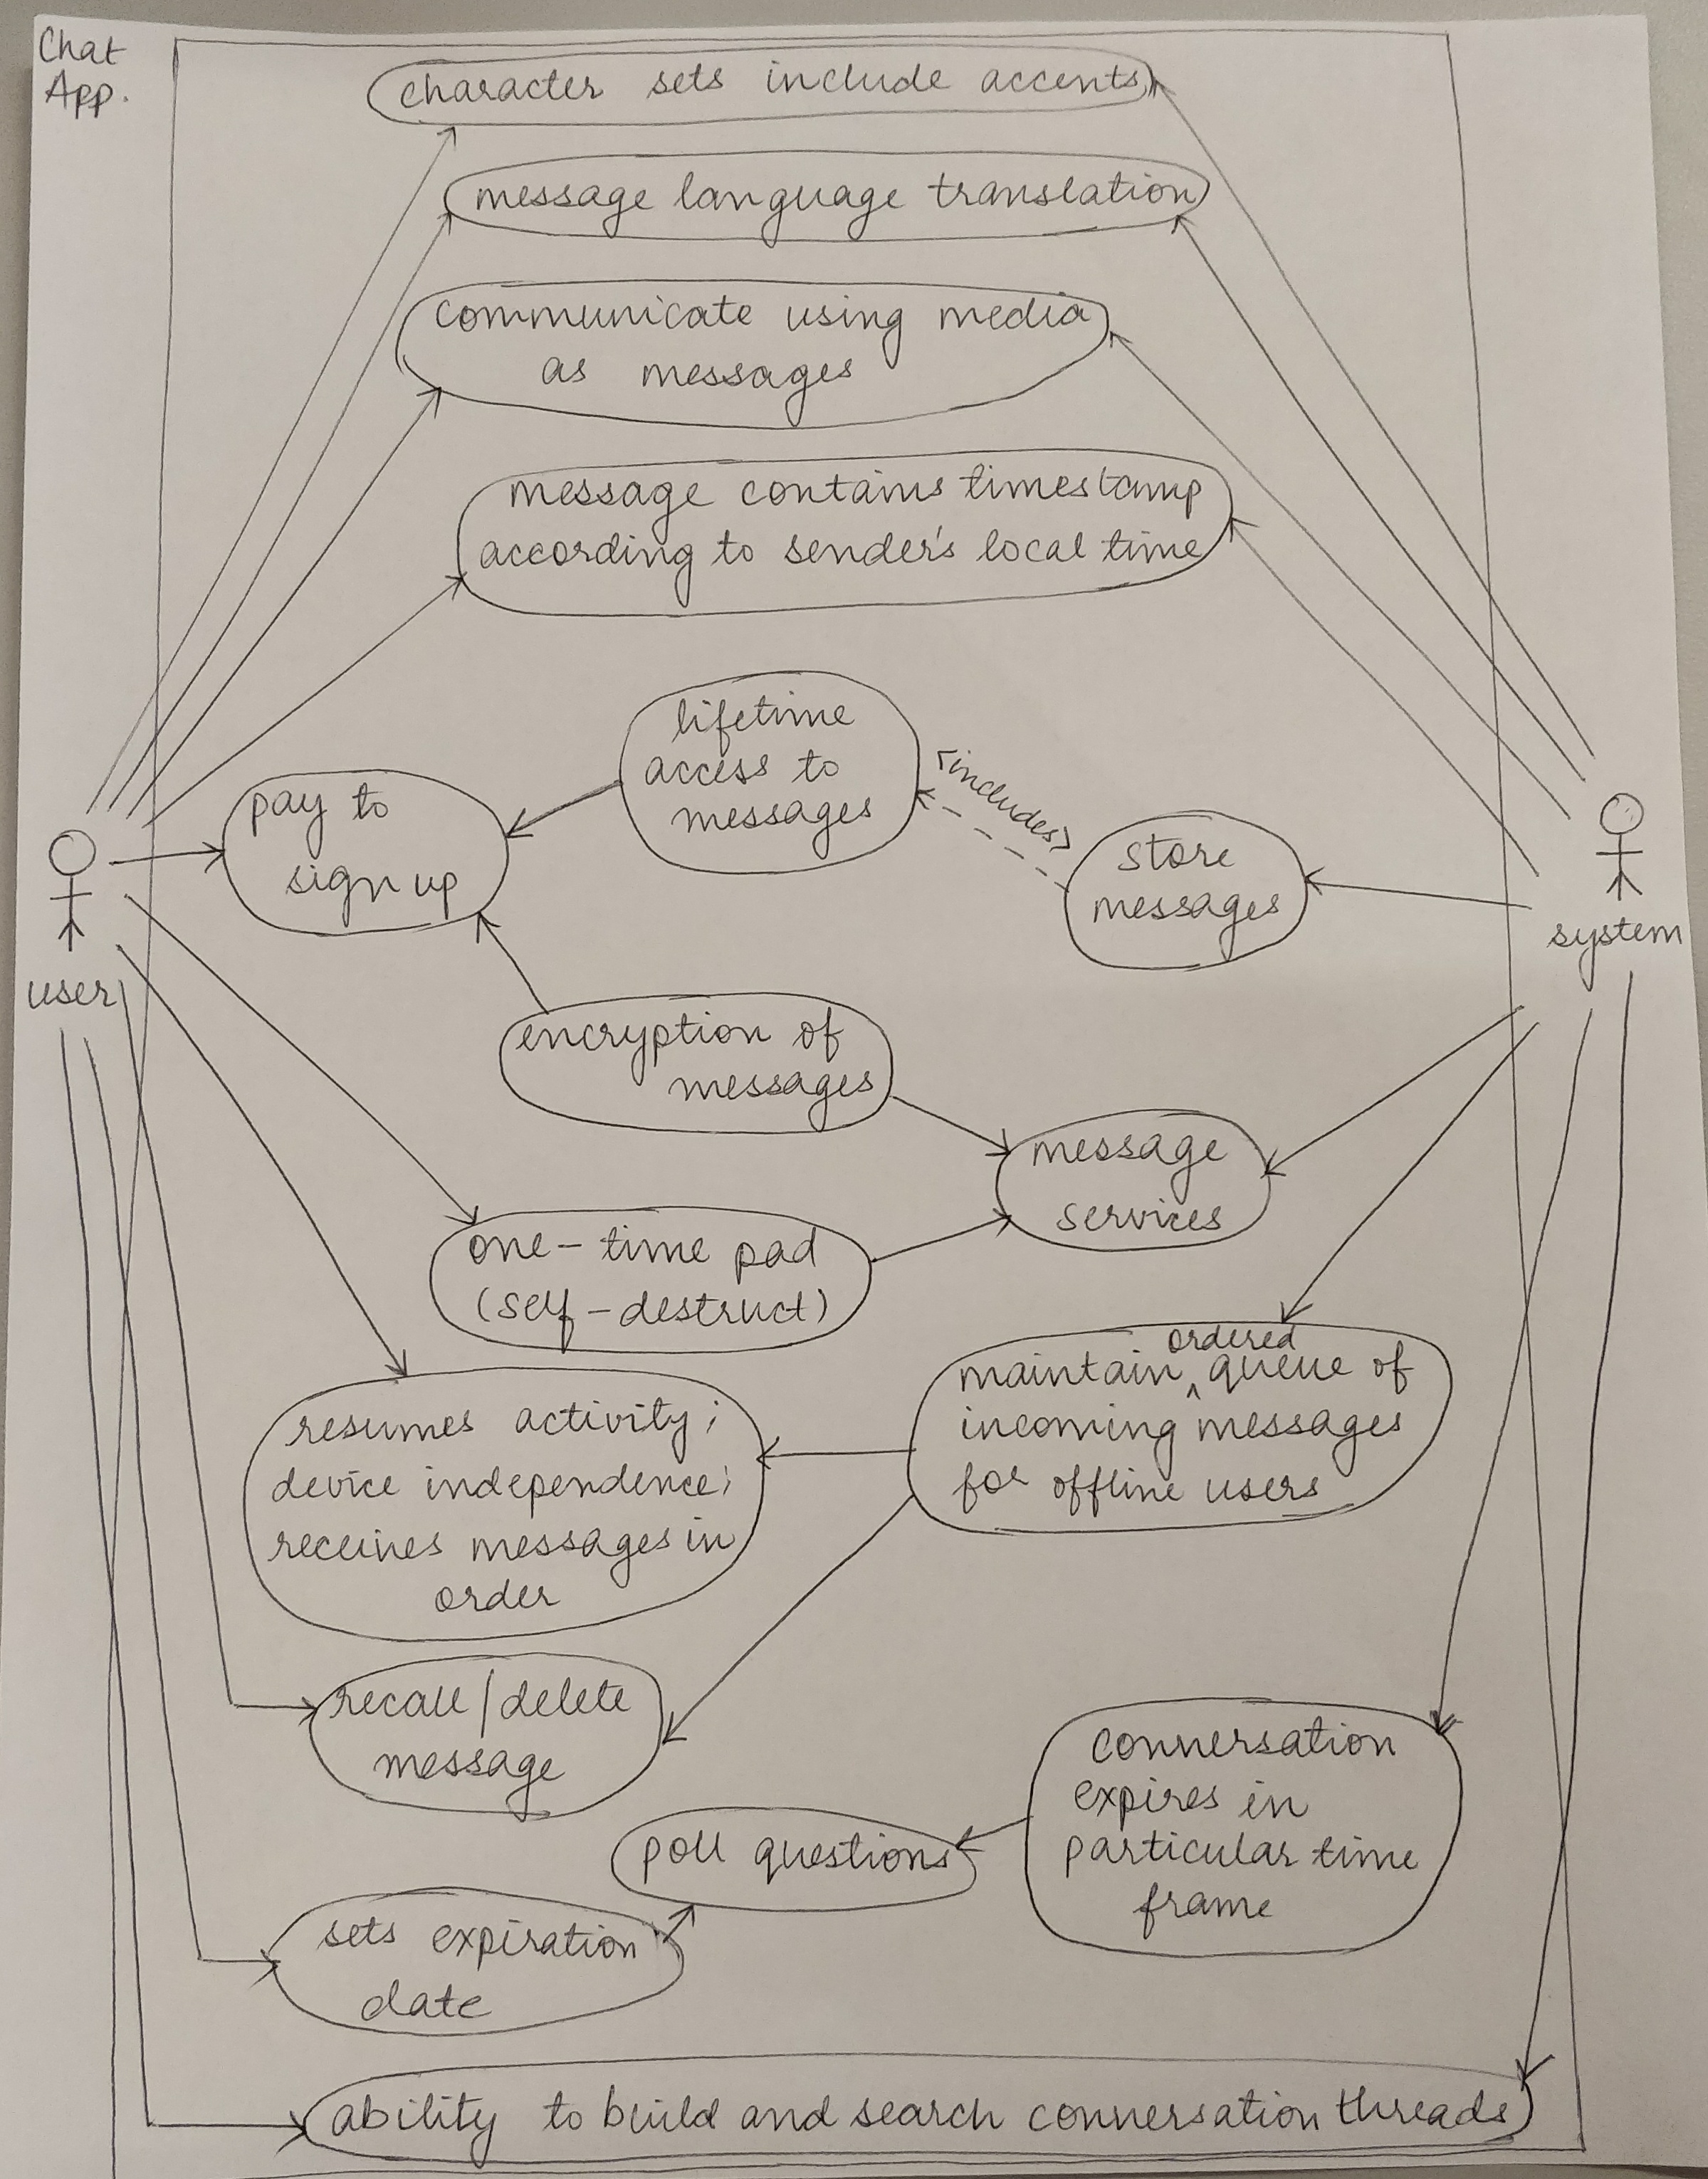 Chat
App.
character sets include accents
message language translation
communicate using media
as messages
message contains timestamp
according to sender's local time
lifetime
access to
messages
<includes>
pay to
sign up
store
messages
user
system
encryption of
messages
message
services
one-time pad
(self-destruct)
ordered
maintain ^ queue of
incoming messages
for offline users
resumes activity;
device independence;
receives messages in
order
recall/delete
message
conversation
expires in
particular time
frame
poll questions
sets expiration
date
ability to build and search conversation threads